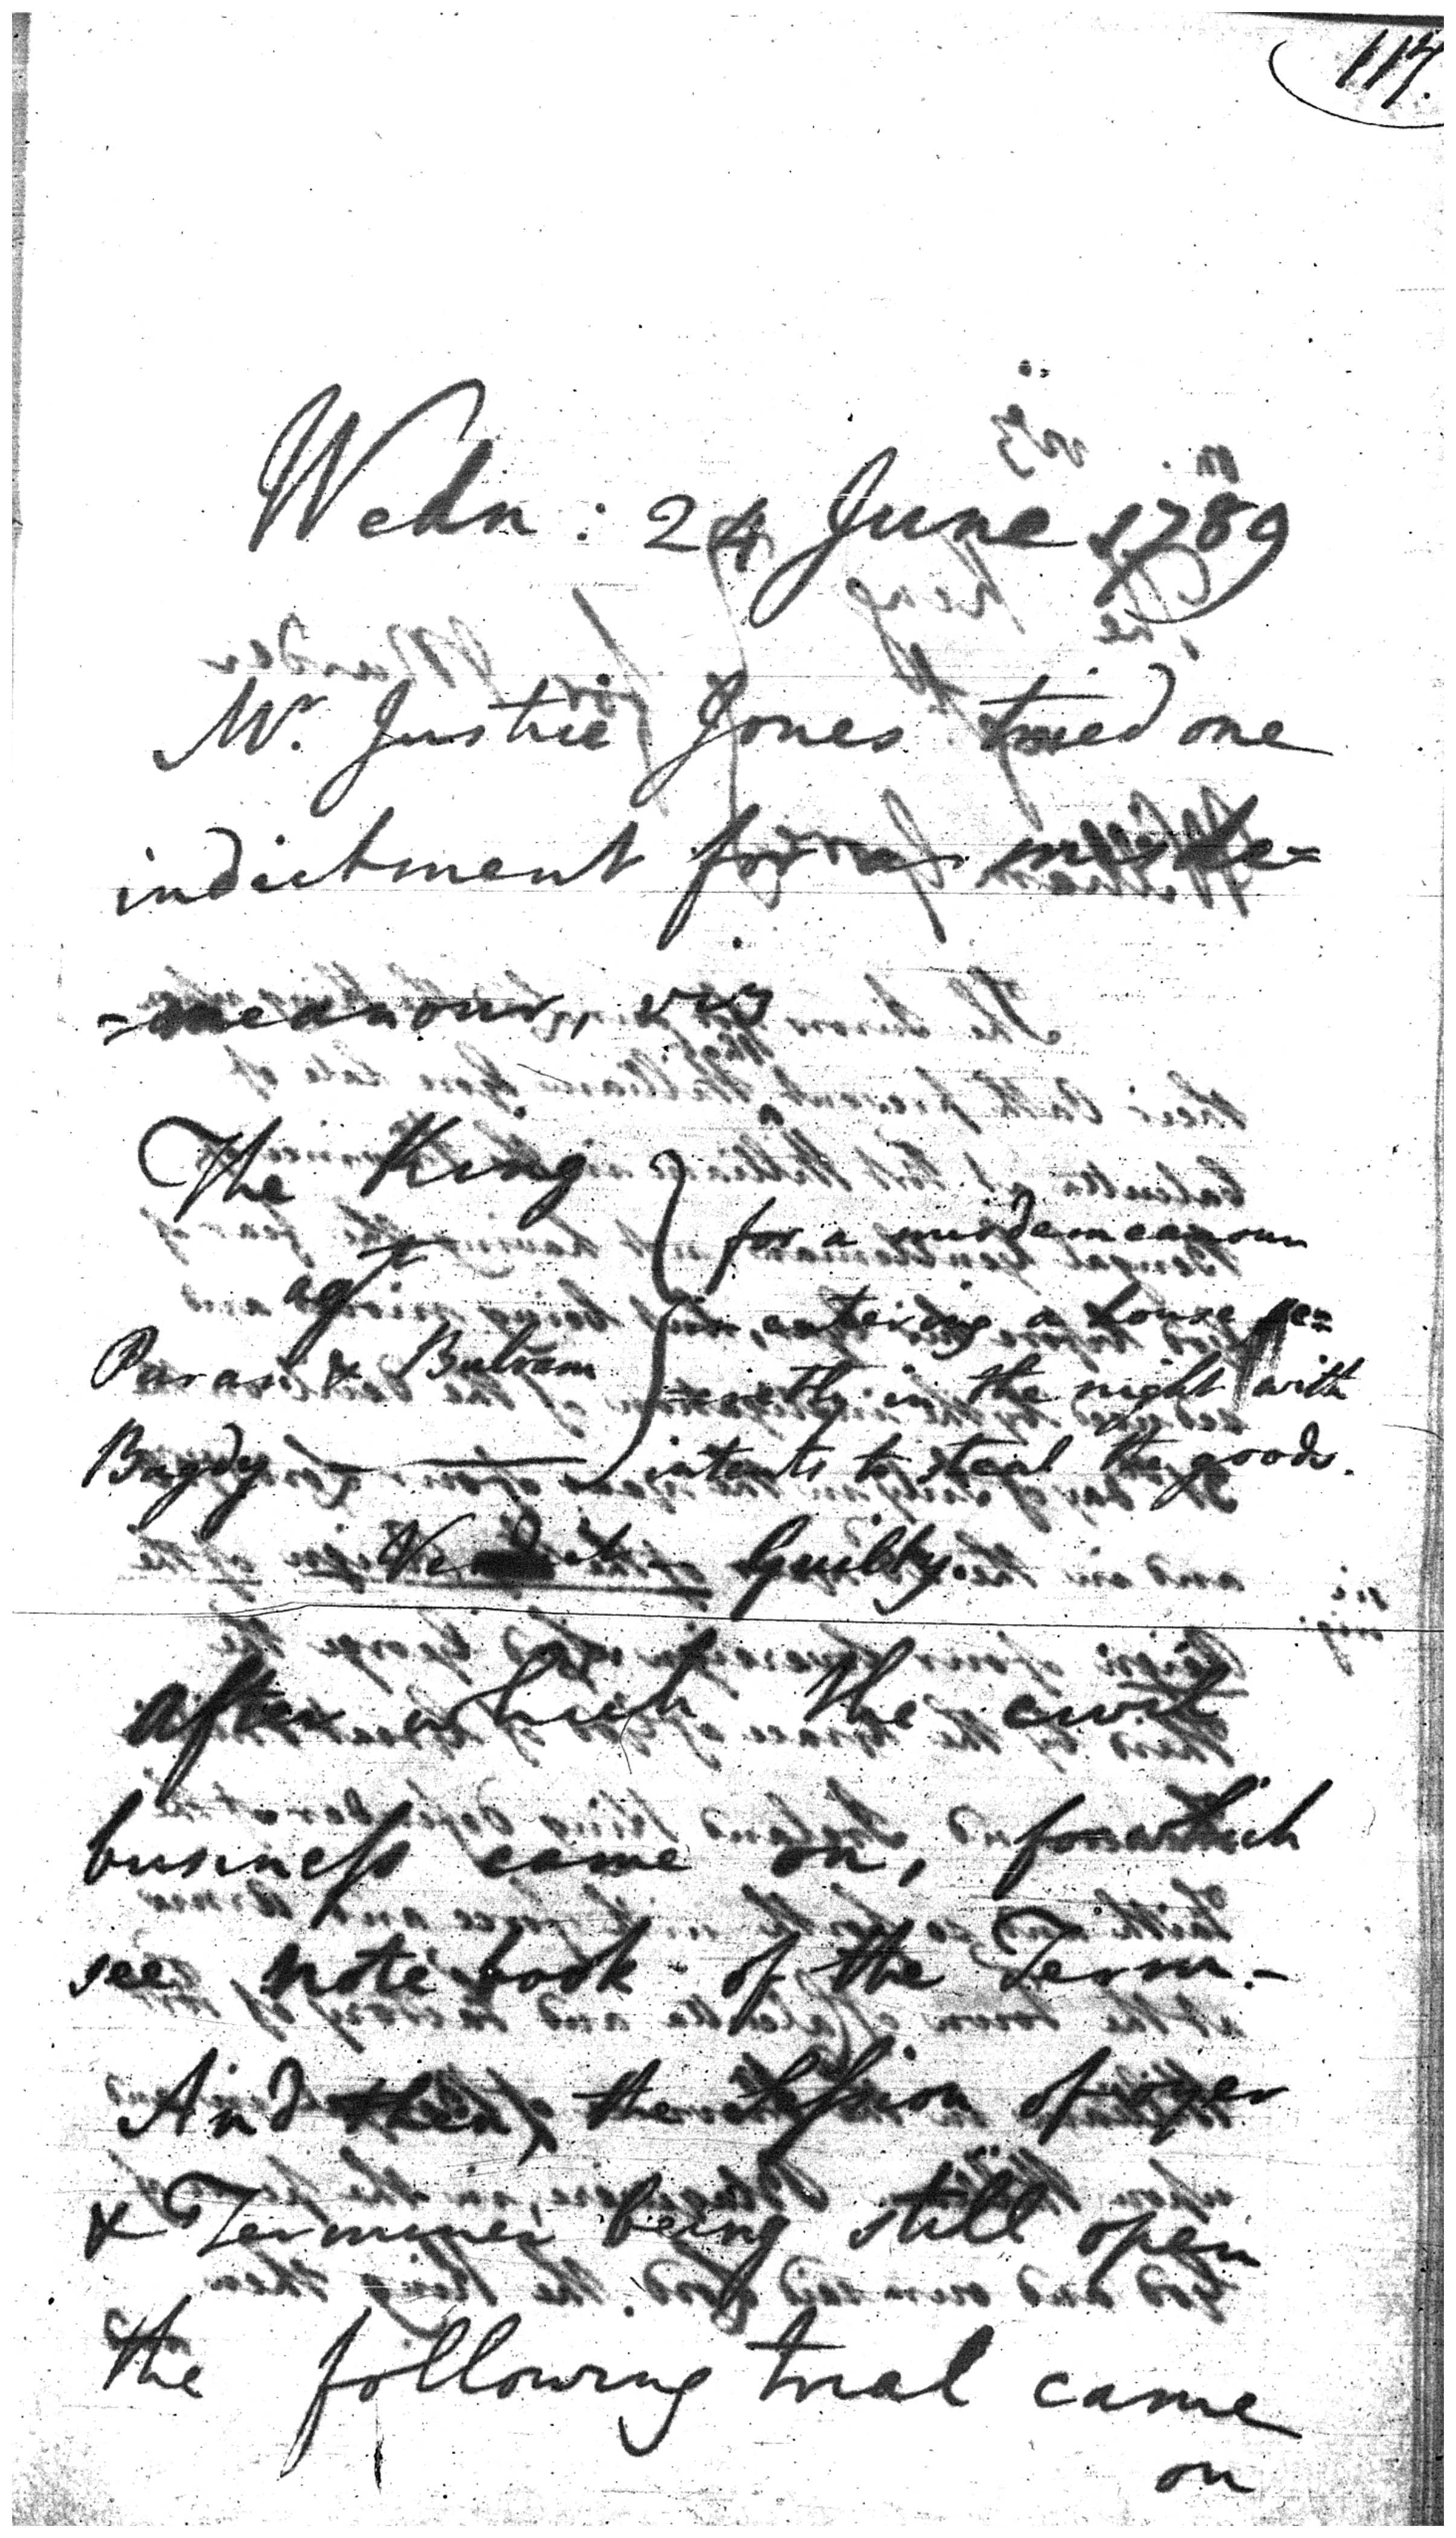 117.
Wedn: 24 June 1789
Mr. Justice Jones tried one
indictment for a misde=
=meanour, viz
The King
agt
Paras & Bulram
Bagdy
for a misdemeanour
in entering a house se=
=cretly in the night with
intents to steal the goods.
Verdict Guilty.
After which the civil
business came on, for which
see note book of the Term.-
And then, the Session of oyer
& Terminer being still open
the following trial came
on